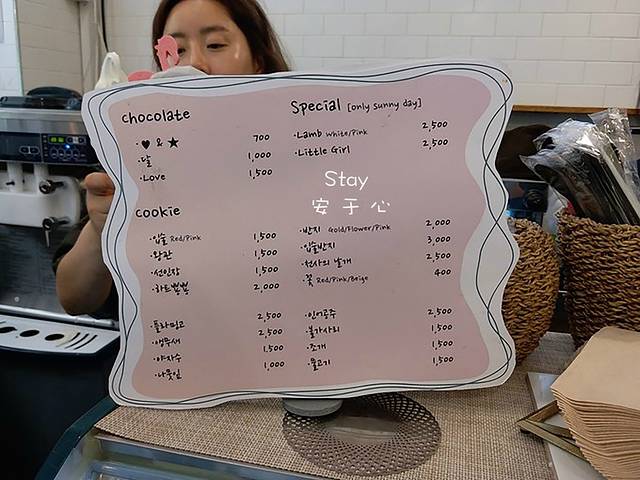 chocolate
·♥ & ★ 700
·달 1,000
·Love 1,500
Special [only sunny day]
·Lamb White/Pink 2,500
·Little Girl 2,500
Stay
安于心
cookie
·입술 Red/Pink 1,500
·왕관 1,500
·선인장 1,500
·하트뿅뿅 2,000
·반지 Gold/Flower/Pink 2,000
·입술반지 3,000
·천사의 날개 2,500
·꽃 Red/Pink/Beige 400
·플라밍고 2,500
·앵무새 2,500
·야자수 1,500
·나뭇잎 1,000
·인어공주 2,500
·불가사리 1,500
·조개 1,500
·물고기 1,500